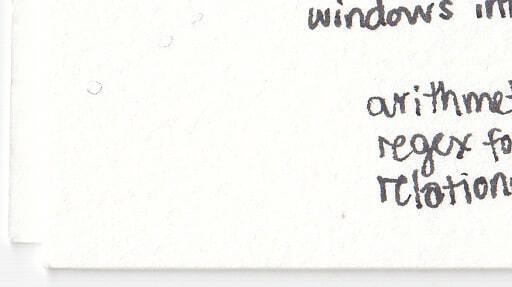 windows in
arithme
regex fo
relation